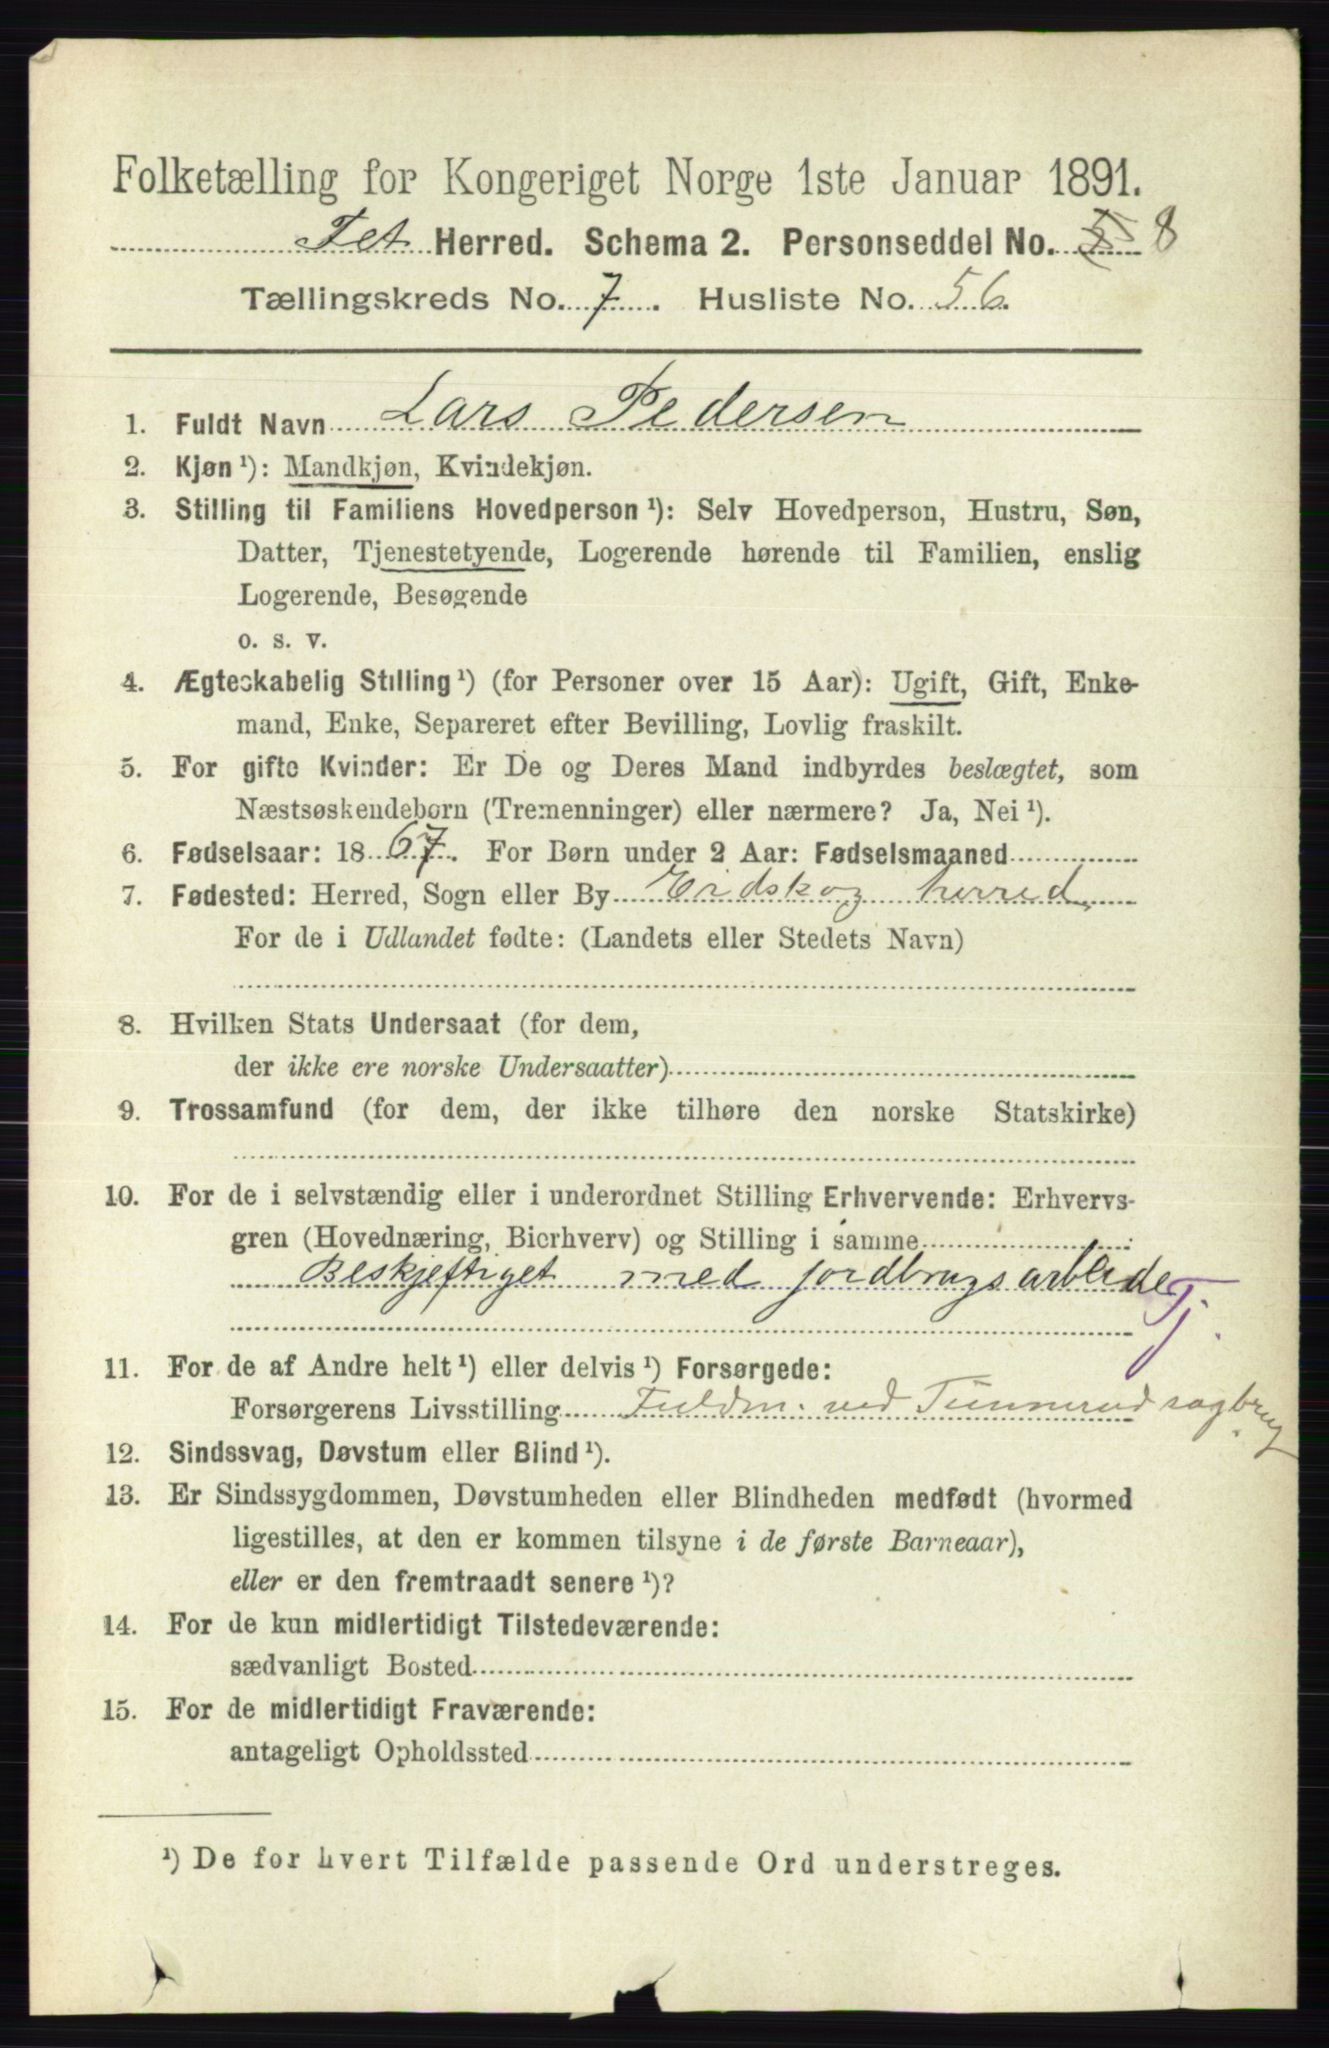 Folketælling for Kongeriget Norge 1ste Januar 1891.
Fet Herred. Schema 2. Personseddel No. 8
Tællingskreds No. 7. Husliste No. 56.
1. Fuldt Navn Lars Pedersen
2. Kjøn ¹): Mandkjøn, Kvindekjøn.
3. Stilling til Familiens Hovedperson ¹): Selv Hovedperson, Hustru, Søn,
Datter, Tjenestetyende, Logerende hørende til Familien, enslig
Logerende, Besøgende
o. s. v.
4. Ægteskabelig Stilling ¹) (for Personer over 15 Aar): Ugift, Gift, Enke-
mand, Enke, Separeret efter Bevilling, Lovlig fraskilt.
5. For gifte Kvinder: Er De og Deres Mand indbyrdes beslægtet, som
Næstsøskendebørn (Tremenninger) eller nærmere? Ja, Nei ¹).
6. Fødselsaar: 1867. For Børn under 2 Aar: Fødselsmaaned
7. Fødested: Herred, Sogn eller By Eidskog herred
For de i Udlandet fødte: (Landets eller Stedets Navn)
8. Hvilken Stats Undersaat (for dem,
der ikke ere norske Undersaatter)
9. Trossamfund (for dem, der ikke tilhøre den norske Statskirke)
10. For de i selvstændig eller i underordnet Stilling Erhvervende: Erhvervs-
gren (Hovednæring, Bierhverv) og Stilling i samme
Beskjeftiget med jordbrugsarbeide
Tj.
11. For de af Andre helt ¹) eller delvis ¹) Forsørgede:
Forsørgerens Livsstilling Fuldm. ved Tünnerud sagbrug
12. Sindssvag, Døvstum eller Blind ¹).
13. Er Sindssygdommen, Døvstumheden eller Blindheden medfødt (hvormed
ligestilles, at den er kommen tilsyne i de første Barneaar),
eller er den fremtraadt senere ¹)?
14. For de kun midlertidigt Tilstedeværende:
sædvanligt Bosted
15. For de midlertidigt Fraværende:
antageligt Opholdssted
¹) De for hvert Tilfælde passende Ord understreges.